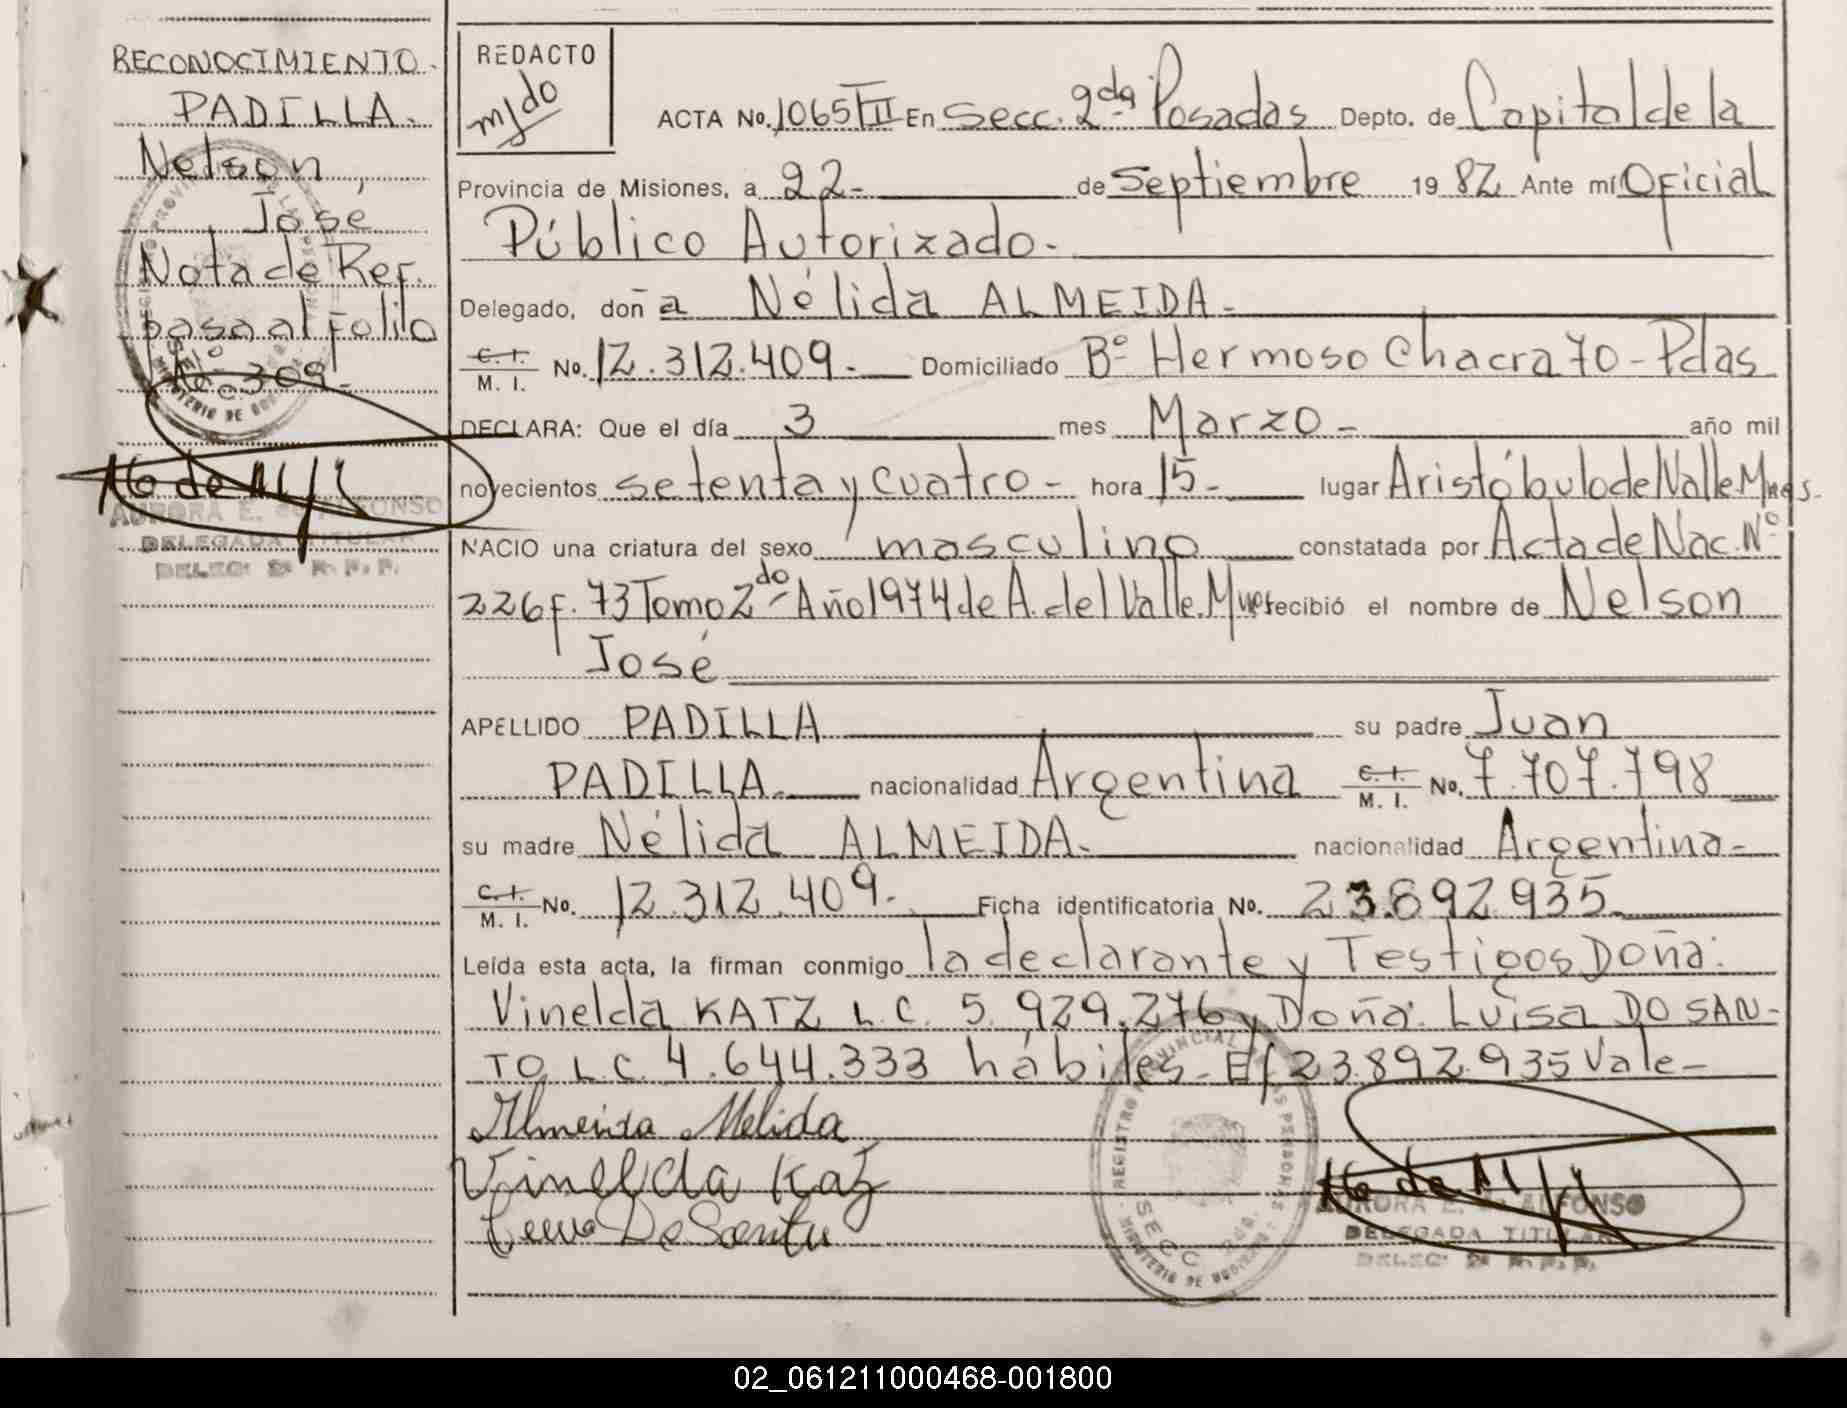 RECONOCIMIENTO.
PADILLA.
Nelson,
José
Nota de Ref.
pasa al folio
No. 309.
AURORA E. de ALFONSO
DELEGADA TITULAR
DELEG. 2ª R. P. P.
REDACTO
m/do
ACTA No. 1065 TII En Secc. 2da Posadas Depto. de Capital de la
Provincia de Misiones, a 22- de Septiembre 1982 Ante mí Oficial
Público Autorizado.-
Delegado, doña Nélida ALMEIDA.-
C. I. M. I. No. 12.312.409.- Domiciliado Bº Hermoso Chacra 70-Pdas
DECLARA: Que el día 3 mes Marzo- año mil
novecientos setenta y cuatro- hora 15- lugar Aristóbulo de Valle Mnes.
NACIO una criatura del sexo masculino constatada por Acta de Nac. Nº
226 f. 73 Tomo 2do- Año 1974 de A. del Valle. Mnes recibió el nombre de Nelson
José
APELLIDO PADILLA su padre Juan
PADILLA.- nacionalidad Argentina C. I. M. I. No. 7.707.798
su madre Nélida ALMEIDA.- nacionalidad Argentina-
C. I. M. I. No. 12.312.409.- Ficha identificatoria No. 23.892.935
Leída esta acta, la firman conmigo la declarante y Testigos Doña:
Vinelda KATZ L.C. 5.929.276 y Doña: Luisa DO SAN-
TO L.C. 4.644.333 hábiles- E/ 23.892.935 Vale-
Almeida Nelida
Vinelda Kaz
REGISTRO PROVINCIAL DE LAS PERSONAS
SECC 2da.
MINISTERIO DE GOBIERNO
AURORA E. de ALFONSO
DELEGADA TITULAR
DELEG. 2ª R. P. P.
02_061211000468-001800